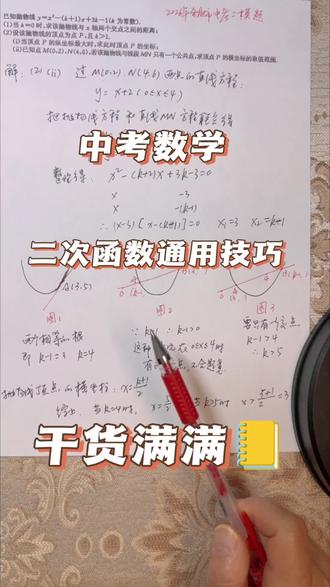 2024年合肥市中考二模题
已知抛物线 y=x²-(k+1)x+3k-1(k 为常数).
(1)当k=0时,求该抛物线与x轴两个交点之间的距离;
(2)设该抛物线的顶点为点P,且k>1.
(i)当顶点P的纵坐标最大时,求此时顶点P的坐标;
(ii)已知点M(0,2),N(4,6),若该抛物线与线段MN只有一个公共点,求顶点P的横坐标的取值范围.
解:(2)(ii) 过M(0,2) N(4,6)两点的直线方程:
y=x+2(0≤x≤4)
把抛物线方程和直线MN方程联立得
中考数学
整理得: x²-(k+2)x+3k-3=0
x -3
x -(k-1)
∴(x-3)[x-(k-1)]=0 x₁=3 x₂=k-1
二次函数通用技巧
A(3,5)
图1
图2
图3
两个相等的根
即 k-1=3 k=4
∵k>1 ∴k-1>0
要只有一个交点
k-1>4
∴k>5
抛物线顶点的横坐标: x=k+1/2
干货满满